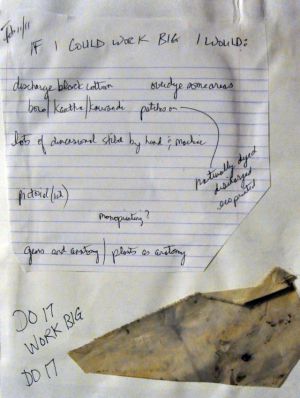 Feb 11/11
IF I COULD WORK BIG I WOULD:
discharge black cotton overdye some areas
boro/Kantha/Kawandi patches on
lots of dimensional stitch by hand & machine
naturally dyed
discharged
ecoprinted
pictoid
monoprinting?
gems and anatomy / plants as anatomy
DO IT
WORK BIG
DO IT